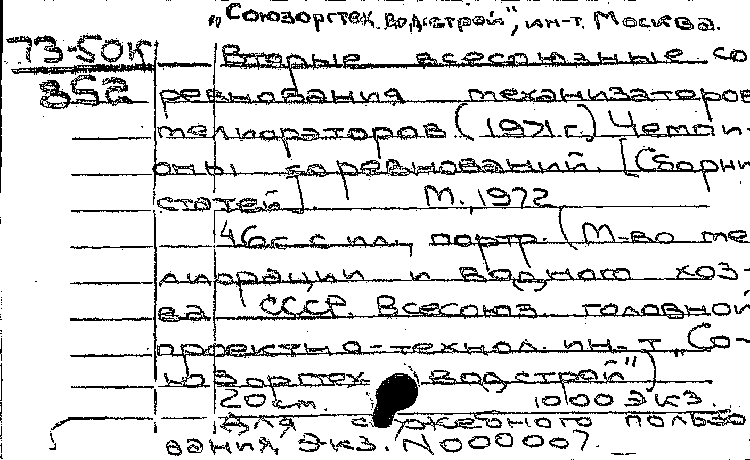 „Союзоргтехводстрой", ин-т. Москва.
73-50к Вторые всесоюзные со
852 ревнования механизаторов
мелиораторов (1971 г.) Чемпи
оны соревнований. [Сборни
статей]. М., 1972
46с. с ил., портр. (М-во ме
лиорации и водного хоз-
ва СССР. Всесоюз. головной
проектно-технол. ин-т „Со-
юзоргтехводстрой")
20 см. 1000 экз.
Для служебного пользо
вания, Экз. N000007.